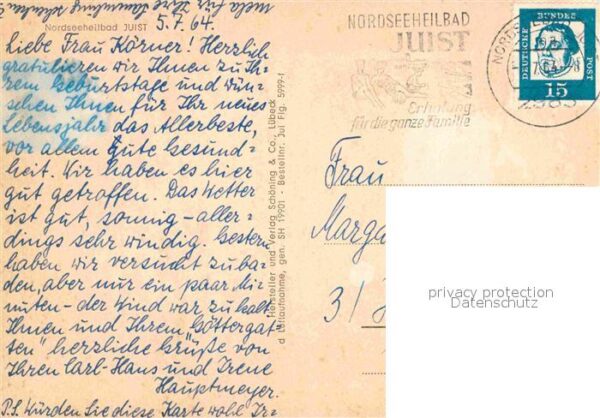 Nordseeheilbad JUIST
5.7.64.
Liebe Frau Körner! Herzlich
gratulieren wir Ihnen zu Ih-
rem Geburtstage und wün-
schen Ihnen für Ihr neues
Lebensjahr das Allerbeste,
vor allem gute Gesund-
heit. Wir haben es hier
gut getroffen. Das Wetter
ist gut, sonnig - aller-
dings sehr windig. Gestern
haben wir versucht zu ba-
den, aber nur ein paar Mi-
nuten - der Wind war zu kalt.
Ihnen und Ihrem "Göttergat-
ten" herzliche Grüße von
Ihren Carl-Hans und Irene
Hauptmeyer.
P.S. Würden Sie diese Karte wohl Ir-
Hersteller und Verlag Schöning & Co., Lübeck
d Luftaufnahme, gen. SH 19901 - Bestellnr. Jui Flg. 5999-f
NORDSEEHEILBAD
JUIST
Erholung
für die ganze Familie
DEUTSCHE
BUNDES
POST
15
2983
Frau
Marga
3/
privacy protection
Datenschutz